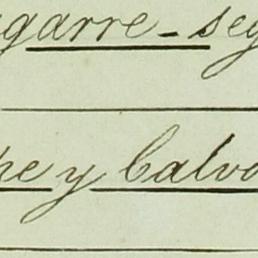 garre - seg
he y Calvo